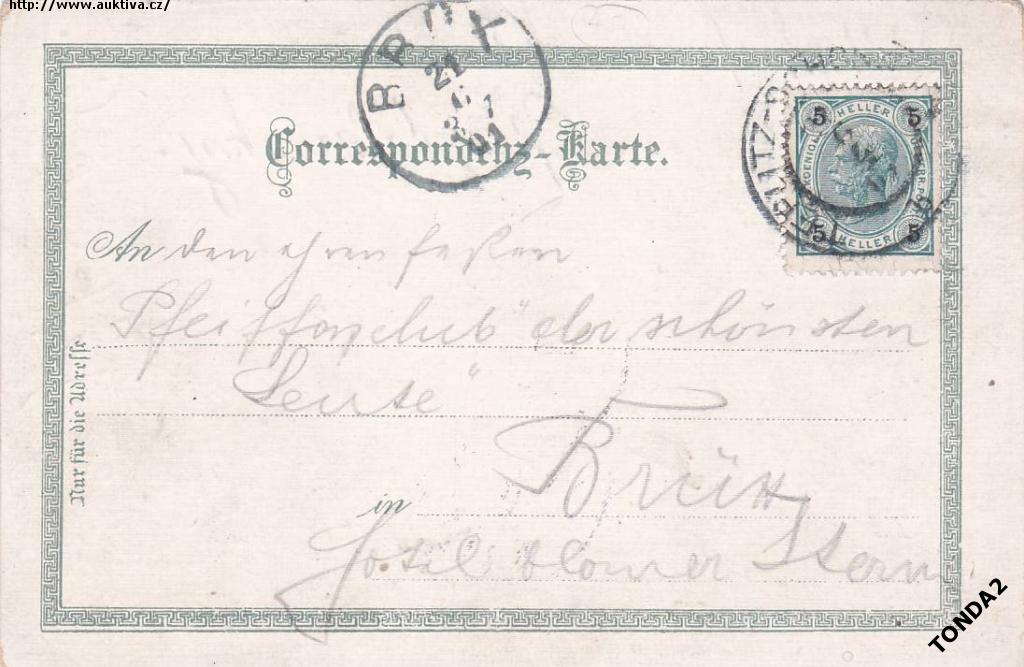 http://www.auktiva.cz/
BRÜX
21
01
TEPLITZ-SCHÖNAU
5 HELLER 5
5 HELLER 5
Correspondenz-Karte.
An den ehrenfesten
Pfeiffenclub "der schönsten
Leute"
in Brüx
Hotel blauer Stern
Nur für die Adresse
TONDA2